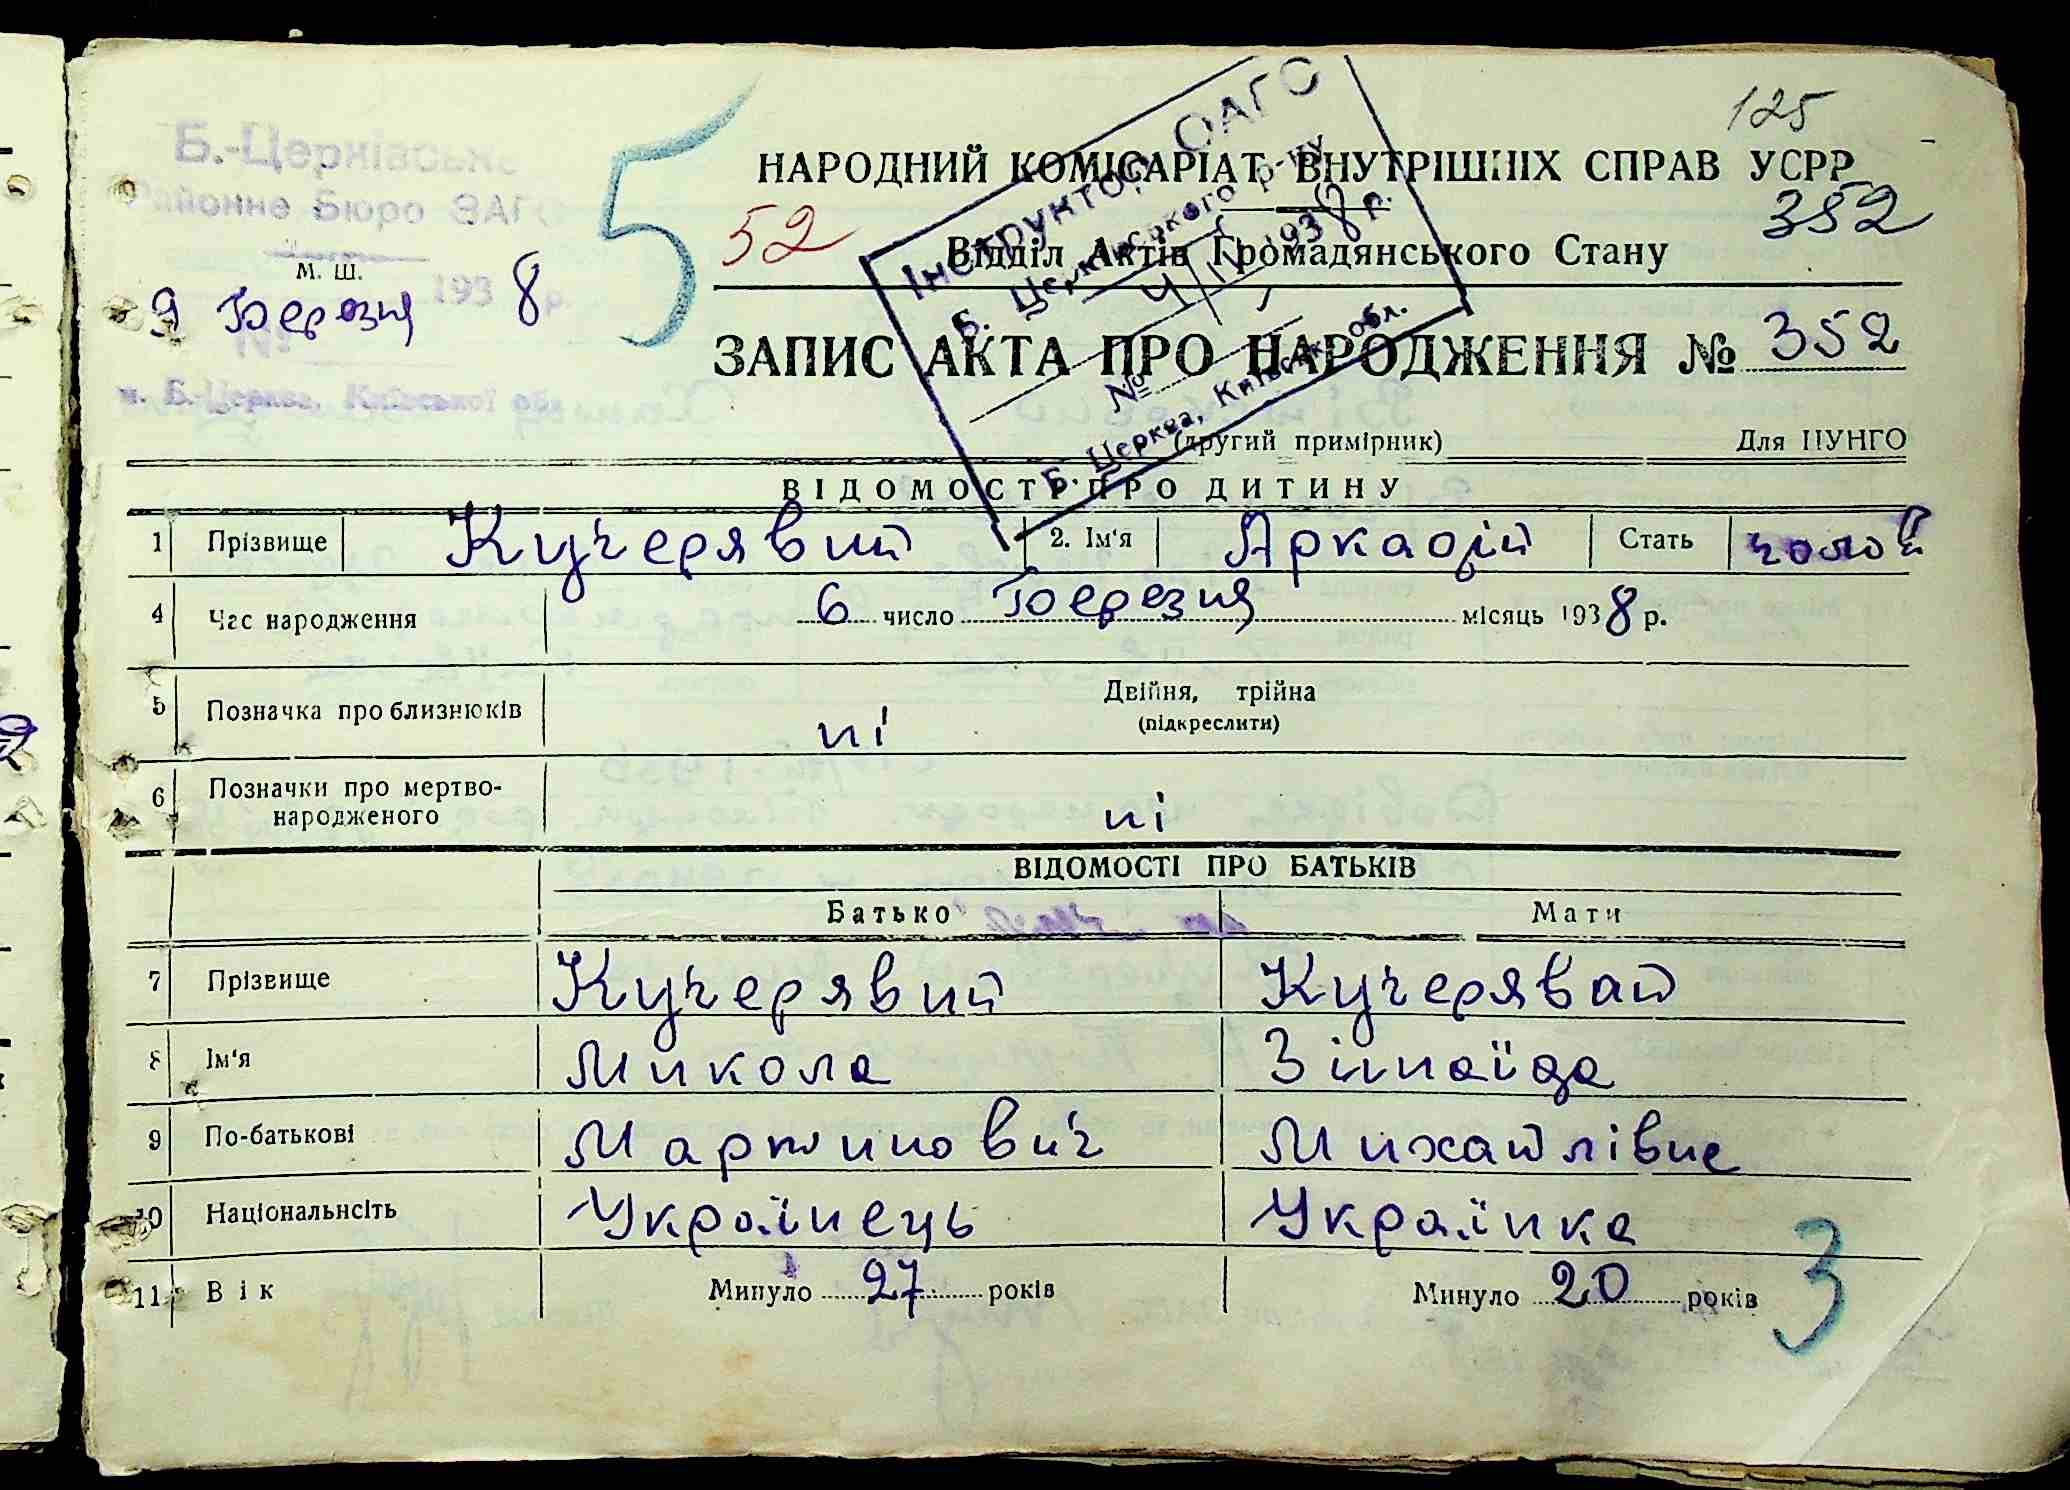 125
Б.-Церківське
Районне Бюро ЗАГС
М. Ш.
9 Березня 1938 р.
№
м. Б. Церква, Київської обл.
5
52
НАРОДНИЙ КОМІСАРІАТ ВНУТРІШНІХ СПРАВ УСРР
352
Відділ Актів Громадянського Стану
Інструктор ОАГС
Б. Церківського р-ну
4/IV 1938 р.
№
Б. Церква, Київськ. обл.
ЗАПИС АКТА ПРО НАРОДЖЕННЯ № 352
(другий примірник) Для ЦУНГО
ВІДОМОСТІ ПРО ДИТИНУ
1 Прізвище Кучерявий 2. Ім'я Аркадій Стать чолов
4 Час народження 6 число Березня місяць 1938 р.
5 Позначка про близнюків ні Двійня, трійна
(підкреслити)
6 Позначки про мертво-
народженого ні
ВІДОМОСТІ ПРО БАТЬКІВ
Батько Мати
7 Прізвище Кучерявий Кучерявай
8 Ім'я Микола Зінаїда
9 По-батькові Мартинович Михайлівна
10 Національнсіть Українець Українка
11 Вік Минуло 27 років Минуло 20 років
3